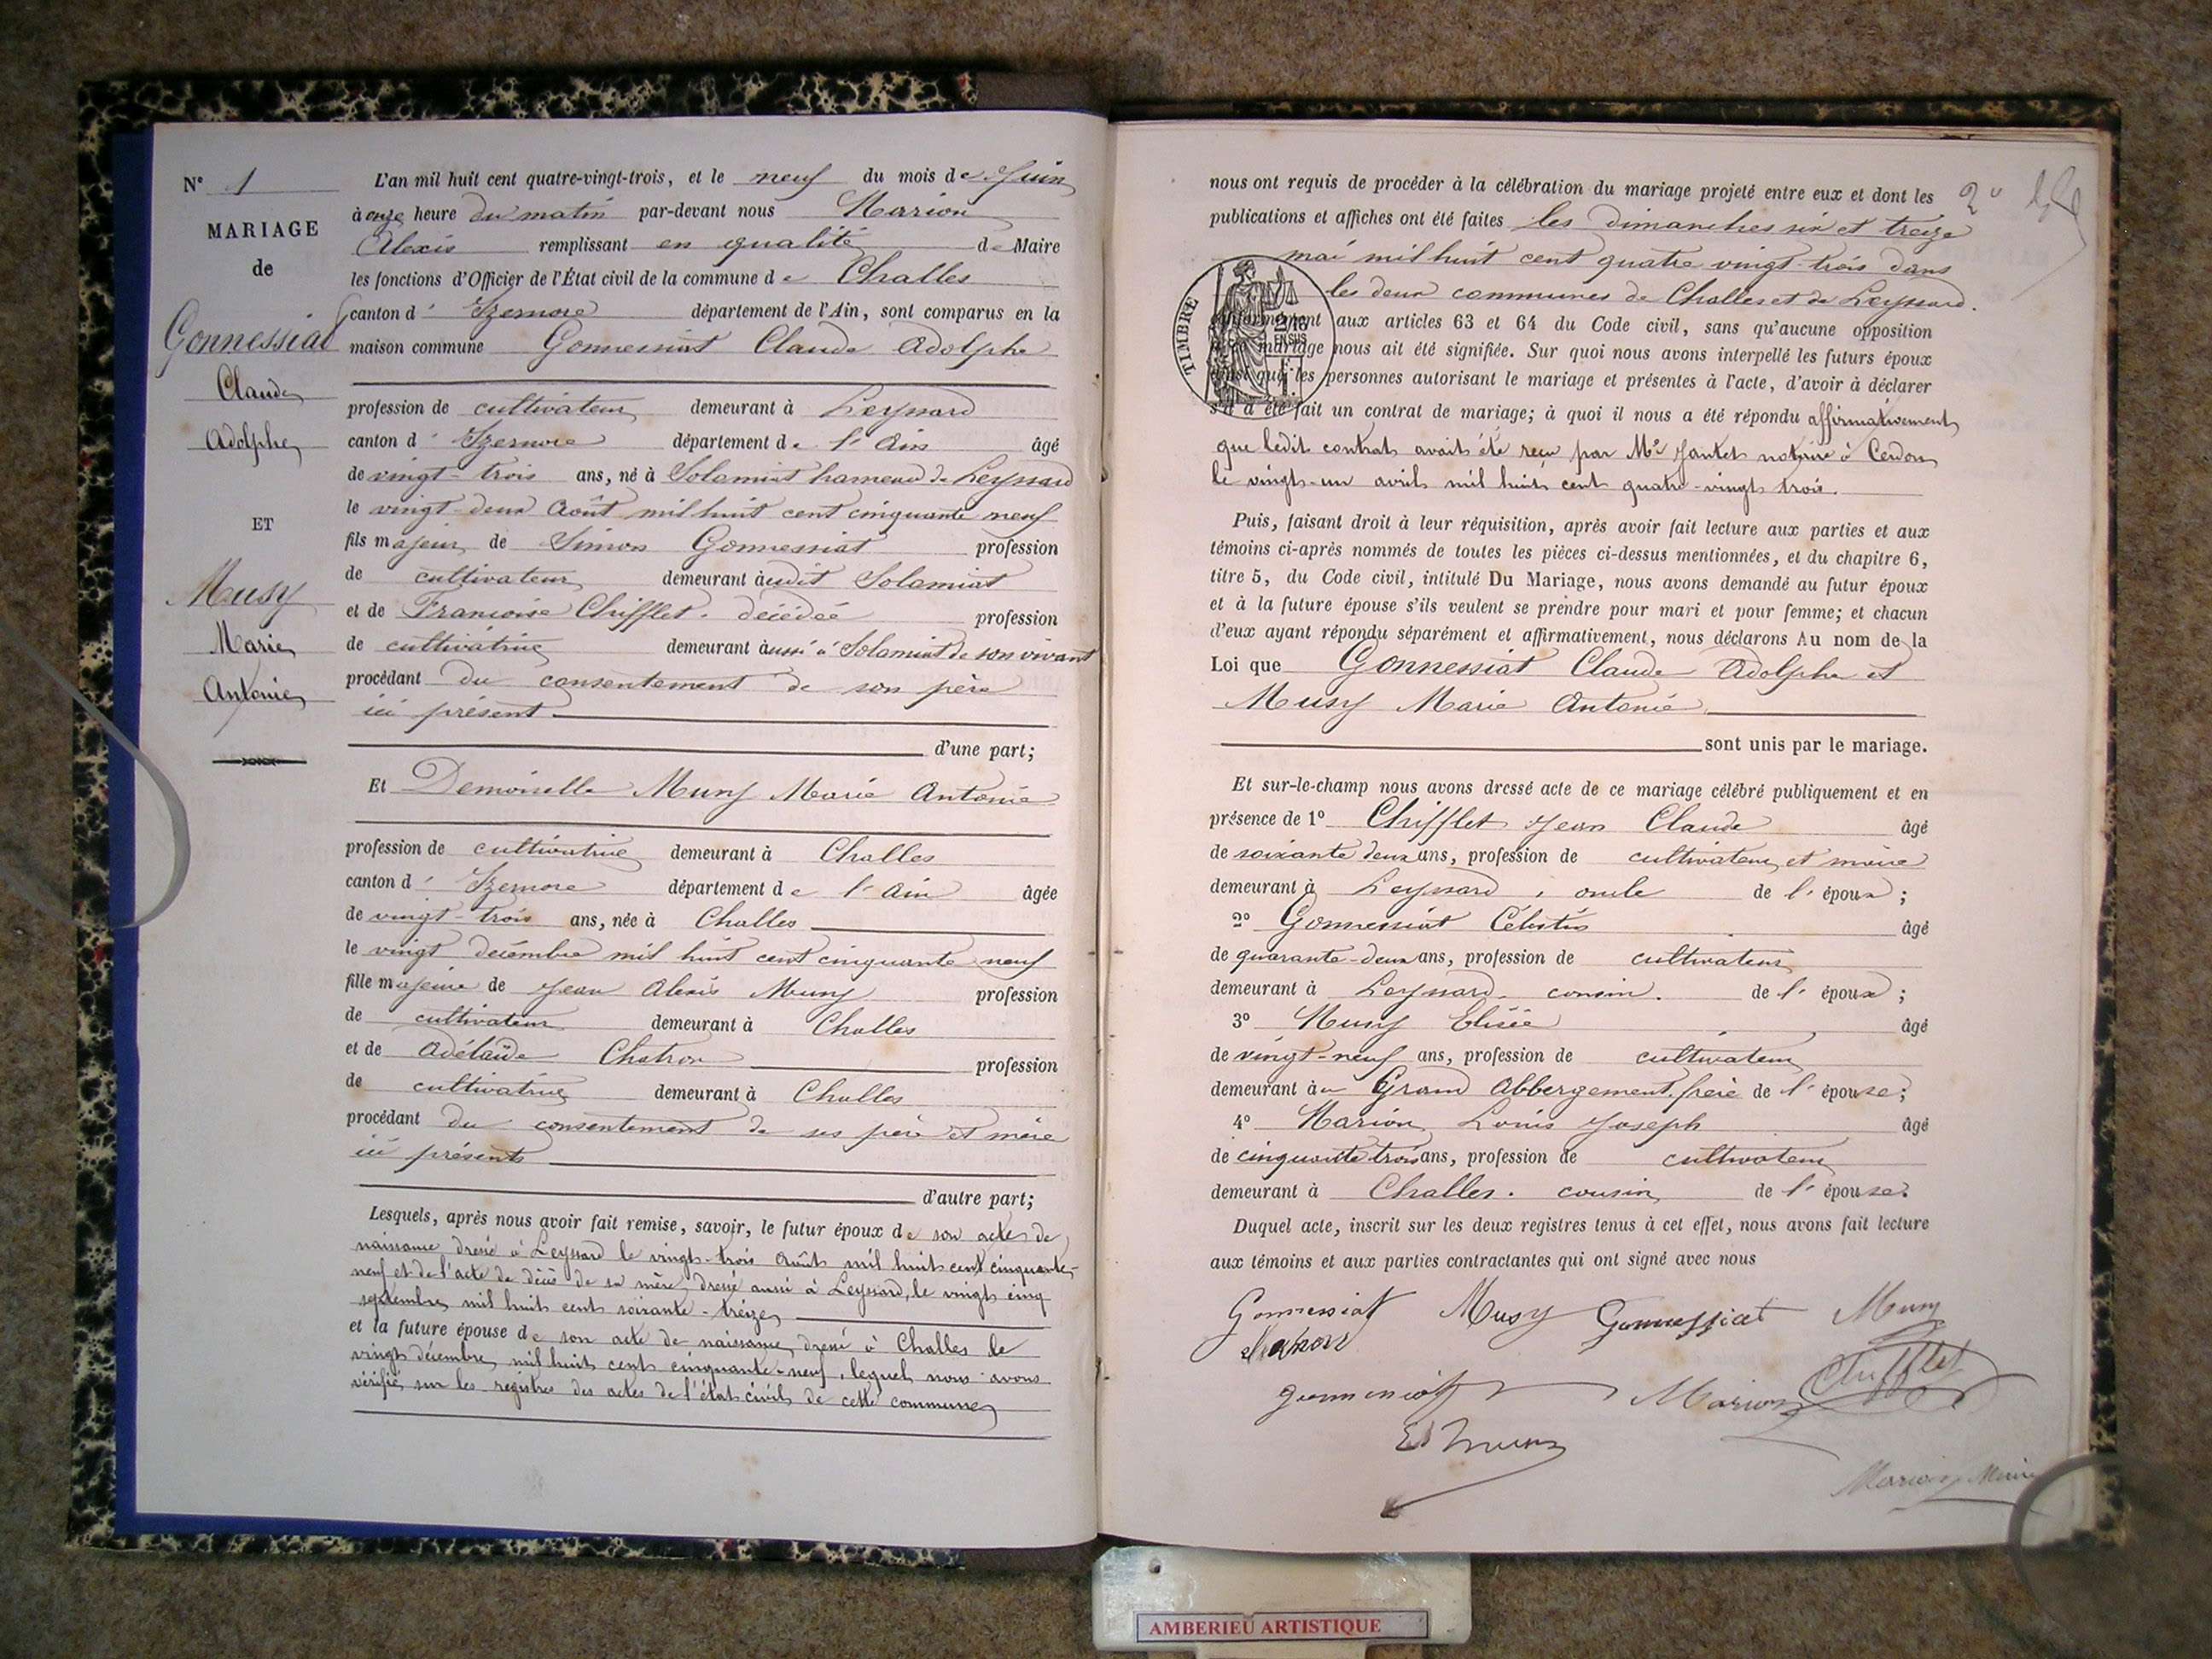 N° 1
MARIAGE
de
Gonnessiat
Claude
Adolphe
ET
Musy
Marie
Antonie
L'an mil huit cent quatre-vingt-trois, et le neuf du mois de Juin
à onze heure du matin par-devant nous Marion
Alexis remplissant en qualité de Maire
les fonctions d'Officier de l'État civil de la commune de Challes
canton d' Izernore département de l'Ain, sont comparus en la
maison commune Gonnessiat Claude Adolphe
profession de cultivateur demeurant à Leyssard
canton d' Izernore département de l'Ain âgé
de vingt-trois ans, né à Solomiat hameau de Leyssard
le vingt-deux Août mil huit cent cinquante neuf
fils majeur de Simon Gonnessiat profession
de cultivateur demeurant àudit Solomiat
et de Francoise Chifflet. décédée profession
de cultivatrice demeurant àussi à Solomiat de son vivant
procédant du consentement de son père
ici présent
d'une part;
Et Demoiselle Musy Marie Antonie
profession de cultivatrice demeurant à Challes
canton d' Izernore département de l'Ain âgée
de vingt-trois ans, née à Challes
le vingt décembre mil huit cent cinquante neuf
fille majeure de Jean Alexis Musy profession
de cultivateur demeurant à Challes
et de Adélaïde Chatron profession
de cultivatrice demeurant à Challes
procédant du consentement de ses père et mère
ici présents
d'autre part;
Lesquels, après nous avoir fait remise, savoir, le futur époux de son acte de
naissance dressé à Leyssard le vingt-trois Août mil huit cent cinquante-
neuf et de l'acte de décès de sa mère, dressé aussi à Leyssard, le vingt cinq
septembre mil huit cent soixante-treize
et la future épouse de son acte de naissance, dressé à Challes le
vingt décembre mil huit cent cinquante-neuf, lequel nous avons
vérifié sur les registres des actes de l'état civil de cette commune
2e
nous ont requis de procéder à la célébration du mariage projeté entre eux et dont les
publications et affiches ont été faites les dimanches six et treize
mai mil huit cent quatre vingt-trois dans
les deux communes de Challes et de Leyssard.
TIMBRE
conformément aux articles 63 et 64 du Code civil, sans qu'aucune opposition
audit mariage nous ait été signifiée. Sur quoi nous avons interpellé les futurs époux
ainsi que les personnes autorisant le mariage et présentes à l'acte, d'avoir à déclarer
s'il a été fait un contrat de mariage; à quoi il nous a été répondu affirmativement
que ledit contrat avait été reçu par Me Jantet notaire à Cerdon
le vingt-un avril mil huit cent quatre-vingt trois.
Puis, faisant droit à leur réquisition, après avoir fait lecture aux parties et aux
témoins ci-après nommés de toutes les pièces ci-dessus mentionnées, et du chapitre 6,
titre 5, du Code civil, intitulé Du Mariage, nous avons demandé au futur époux
et à la future épouse s'ils veulent se prendre pour mari et pour femme; et chacun
d'eux ayant répondu séparément et affirmativement, nous déclarons Au nom de la
Loi que Gonnessiat Claude Adolphe et
Musy Marie Antonie
sont unis par le mariage.
Et sur-le-champ nous avons dressé acte de ce mariage célébré publiquement et en
présence de 1° Chifflet Jean Claude âgé
de soixante deux ans, profession de cultivateur et maire
demeurant à Leyssard, oncle de l'époux;
2° Gonnessiat Célestin âgé
de quarante-deux ans, profession de cultivateur
demeurant à Leyssard. cousin. de l'époux;
3° Musy Elisée âgé
de vingt-neuf ans, profession de cultivateur
demeurant àu Grand Abbergement. frère de l'épouse;
4° Marion Louis Joseph âgé
de cinquante trois ans, profession de cultivateur
demeurant à Challes. cousin de l'épouse.
Duquel acte, inscrit sur les deux registres tenus à cet effet, nous avons fait lecture
aux témoins et aux parties contractantes qui ont signé avec nous
Gonnessiat Musy Gonnessiat Musy
Chifflet
Gonnessiat Marion
E Musy
Marion Maire
AMBERIEU ARTISTIQUE